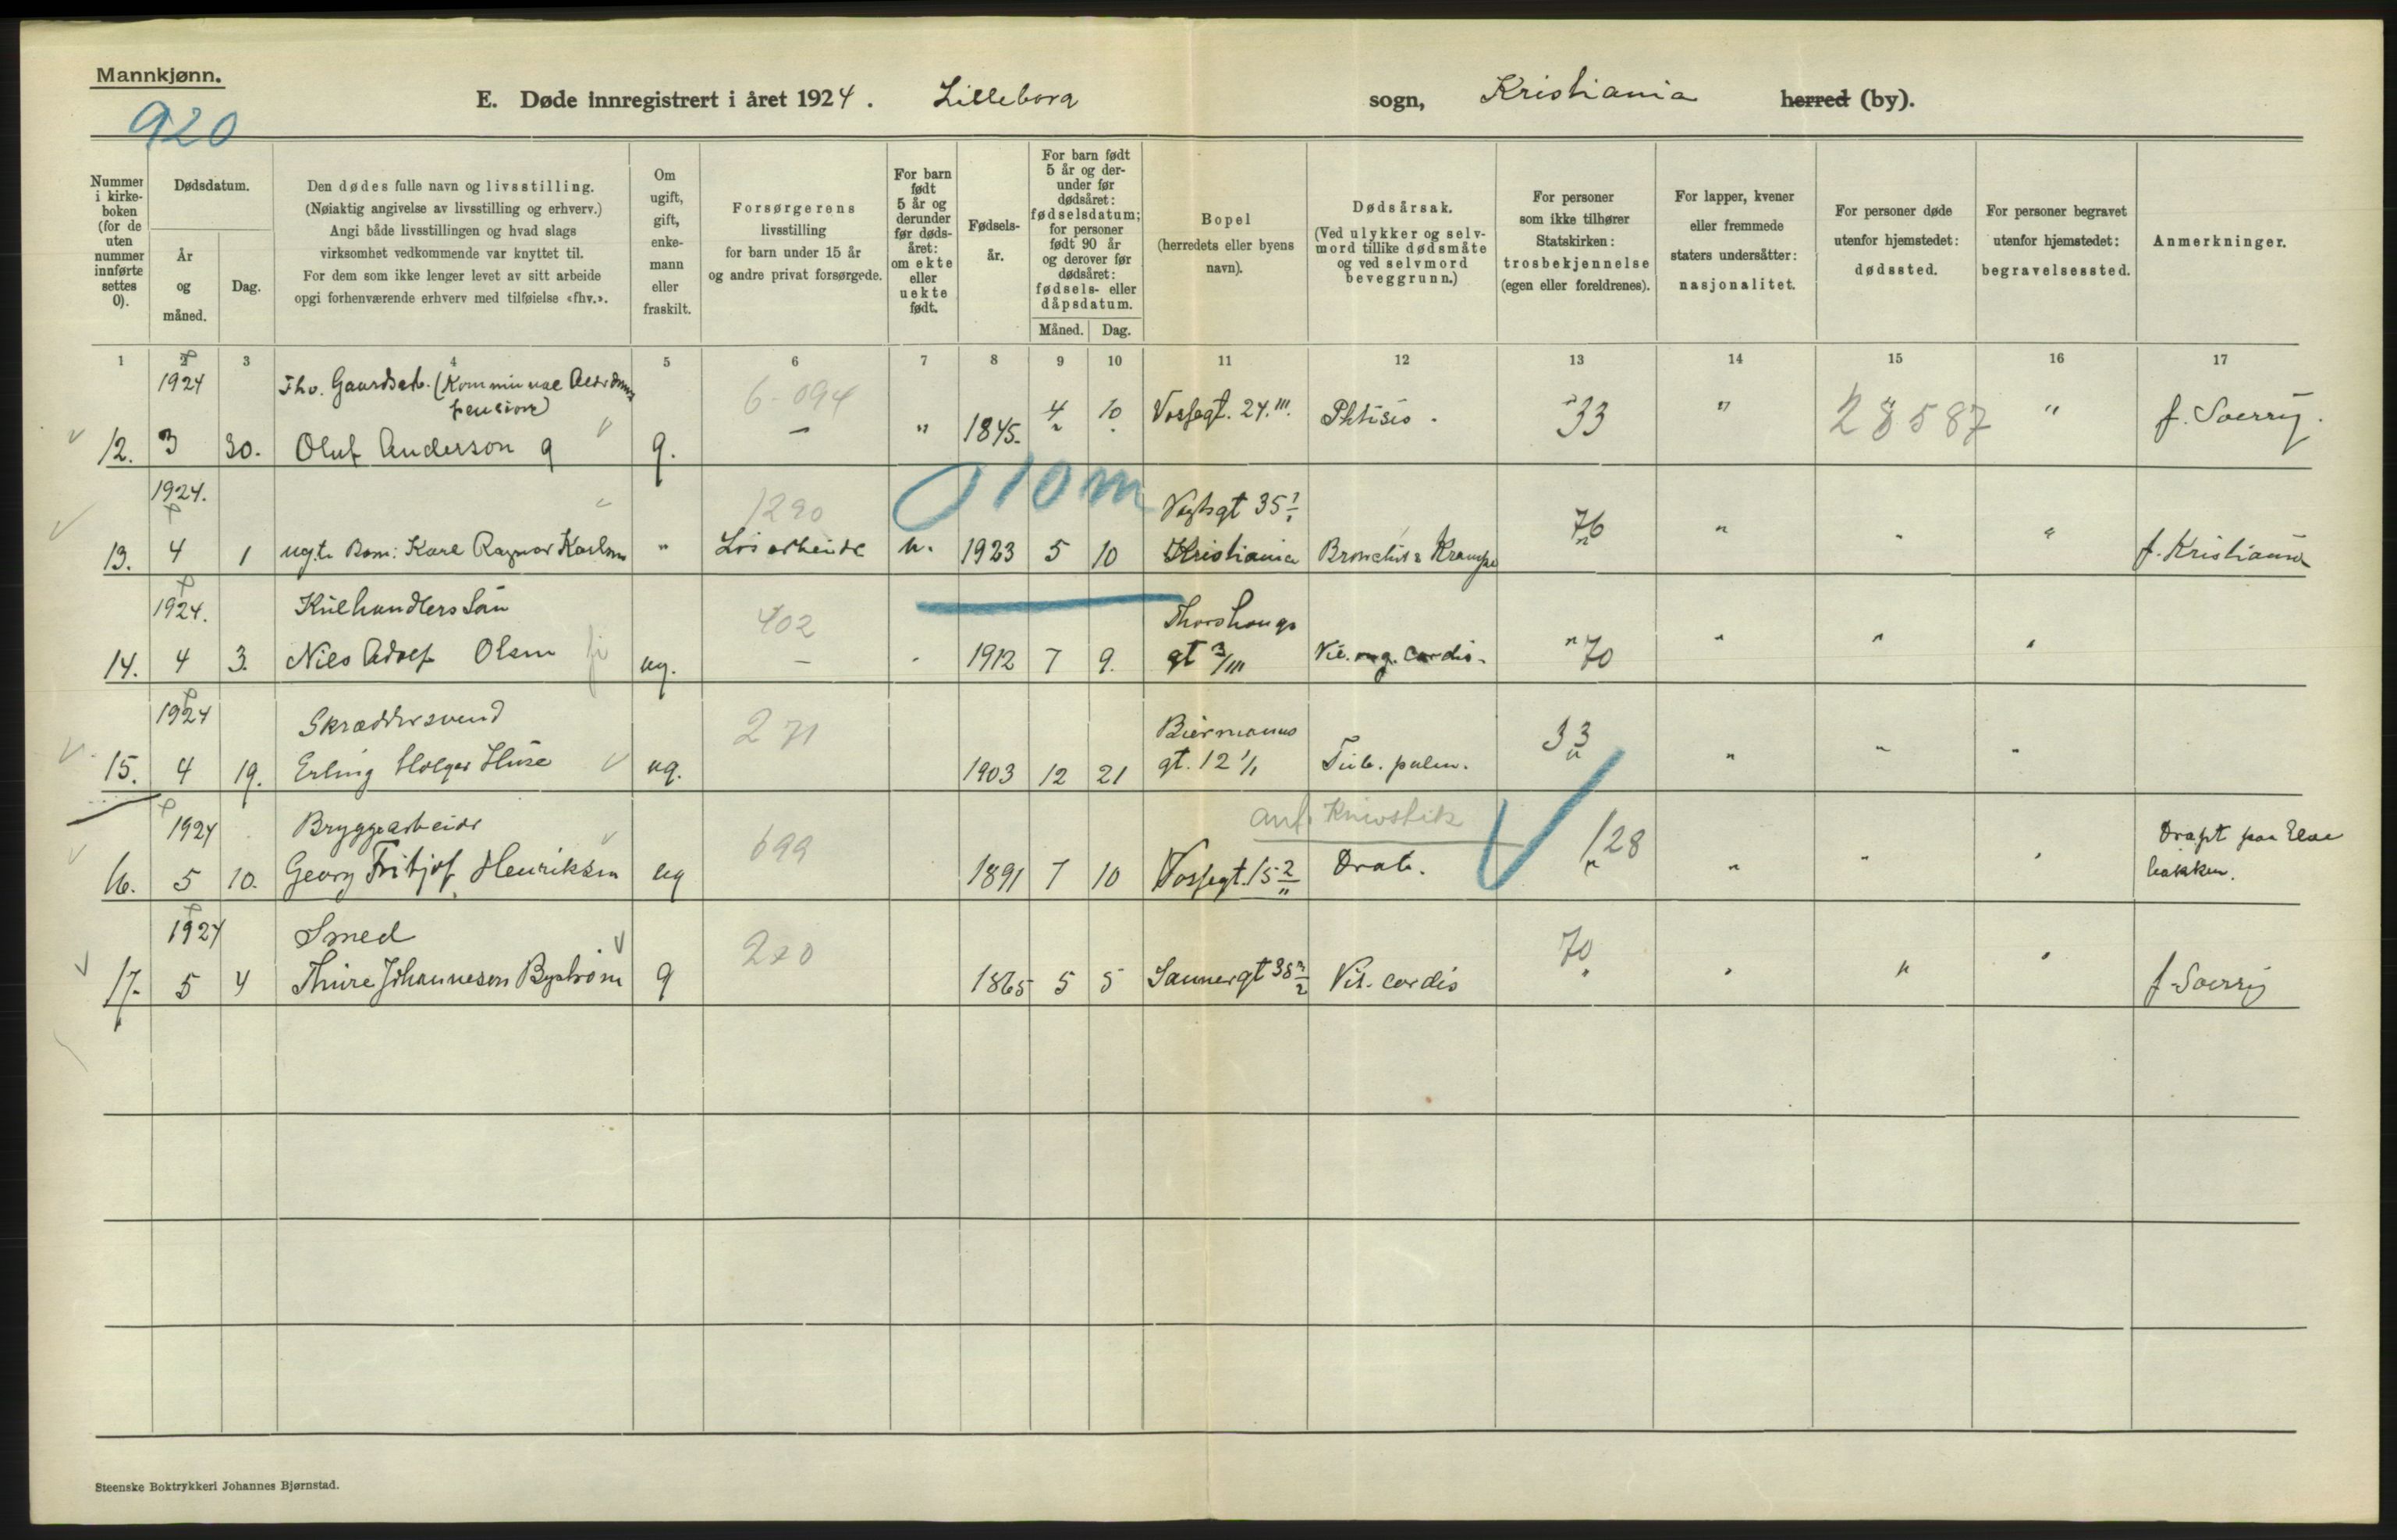 Mannkjønn.
920
E. Døde innregistrert i året 1924. Lilleborg sogn, Kristiania herred (by).
Nummer i kirke-boken (for de uten nummer innførte settes 0).
Dødsdatum.
År og måned.
Dag.
Den dødes fulle navn og livsstilling.
(Nøiaktig angivelse av livsstilling og erhverv.)
Angi både livsstillingen og hvad slags
virksomhet vedkommende var knyttet til.
For dem som ikke lenger levet av sitt arbeide
opgi forhenværende erhverv med tilføielse «fhv.».
Om ugift, gift, enke-mann eller fraskilt.
Forsørgerens
livsstilling
for barn under 15 år
og andre privat forsørgede.
For barn født 5 år og derunder før døds-året: om ekte eller uekte født.
Fødsels-år.
For barn født 5 år og der-under før dødsåret: fødselsdatum; for personer født 90 år og derover før dødsåret: fødsels- eller dåpsdatum.
Måned.
Dag.
Bopel
(herredets eller byens
navn).
Dødsårsak.
(Ved ulykker og selv-
mord tillike dødsmåte
og ved selvmord
beveggrunn.)
For personer
som ikke tilhører
Statskirken:
trosbekjennelse
(egen eller foreldrenes).
For lapper, kvener
eller fremmede
staters undersåtter:
nasjonalitet.
For personer døde
utenfor hjemstedet:
dødssted.
For personer begravet
utenfor hjemstedet:
begravelsessted.
Anmerkninger.
1 2 3 4 5 6 7 8 9 10 11 12 13 14 15 16 17
1924 Fhv. Gaardsarb. (Kommunal Alderdoms
pension) 6-094
12. 3 30. Oluf Anderson g g. — " 1845. 4 10 Vossegt. 24.III. Phtisis. 33 " 28587 " f. Sverrig.
1924. 1290 010m Vogtsgt 35
13. 4 1 ugte Barn: Karl Ragnar Karlsen " Løsarbeide u. 1923 5 10 Kristiania Bronchitis Krampe 76 " " " f. Kristiania
1924. Kulhandlers Søn 402 Thorshaugs
14. 4 3. Nils Adolf Olsen ug. — 1912 7 9. gt 3/III Vit. org. cordis. 70 " " "
1924 Skræddersvend 271 Biermanns 33
15. 4 19. Erling Holger Huse ug. 1903 12 21 gt. 12 1/1 Tub. pulm. " " "
1924 Bryggearbeider 699 anf. Knivstik 128 Dræpt paa Elve
16. 5 10. Georg Fritjof Henriksen ug 1891 7 10 Vossegt. 15 2/" Drab. " " " bakken.
1924 Smed 220 70
17. 5 4 Thure Johannesen Bystrøm g 1865 5 5 Sannergt 38 Vit. cordis " " " f. Sverrig
Steenske Boktrykkeri Johannes Bjørnstad.